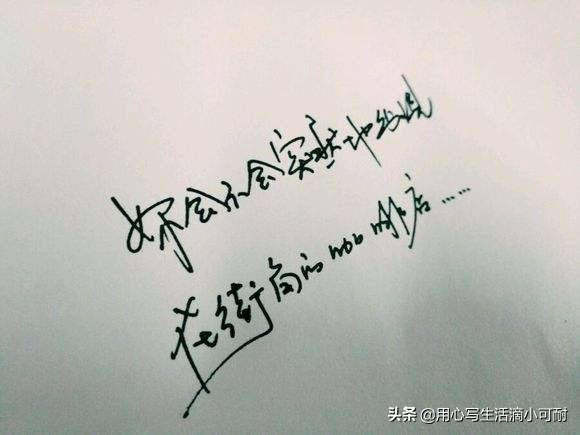 妳会不会突然地出现
在街角的咖啡店……
头条 @用心写生活滴小可耐